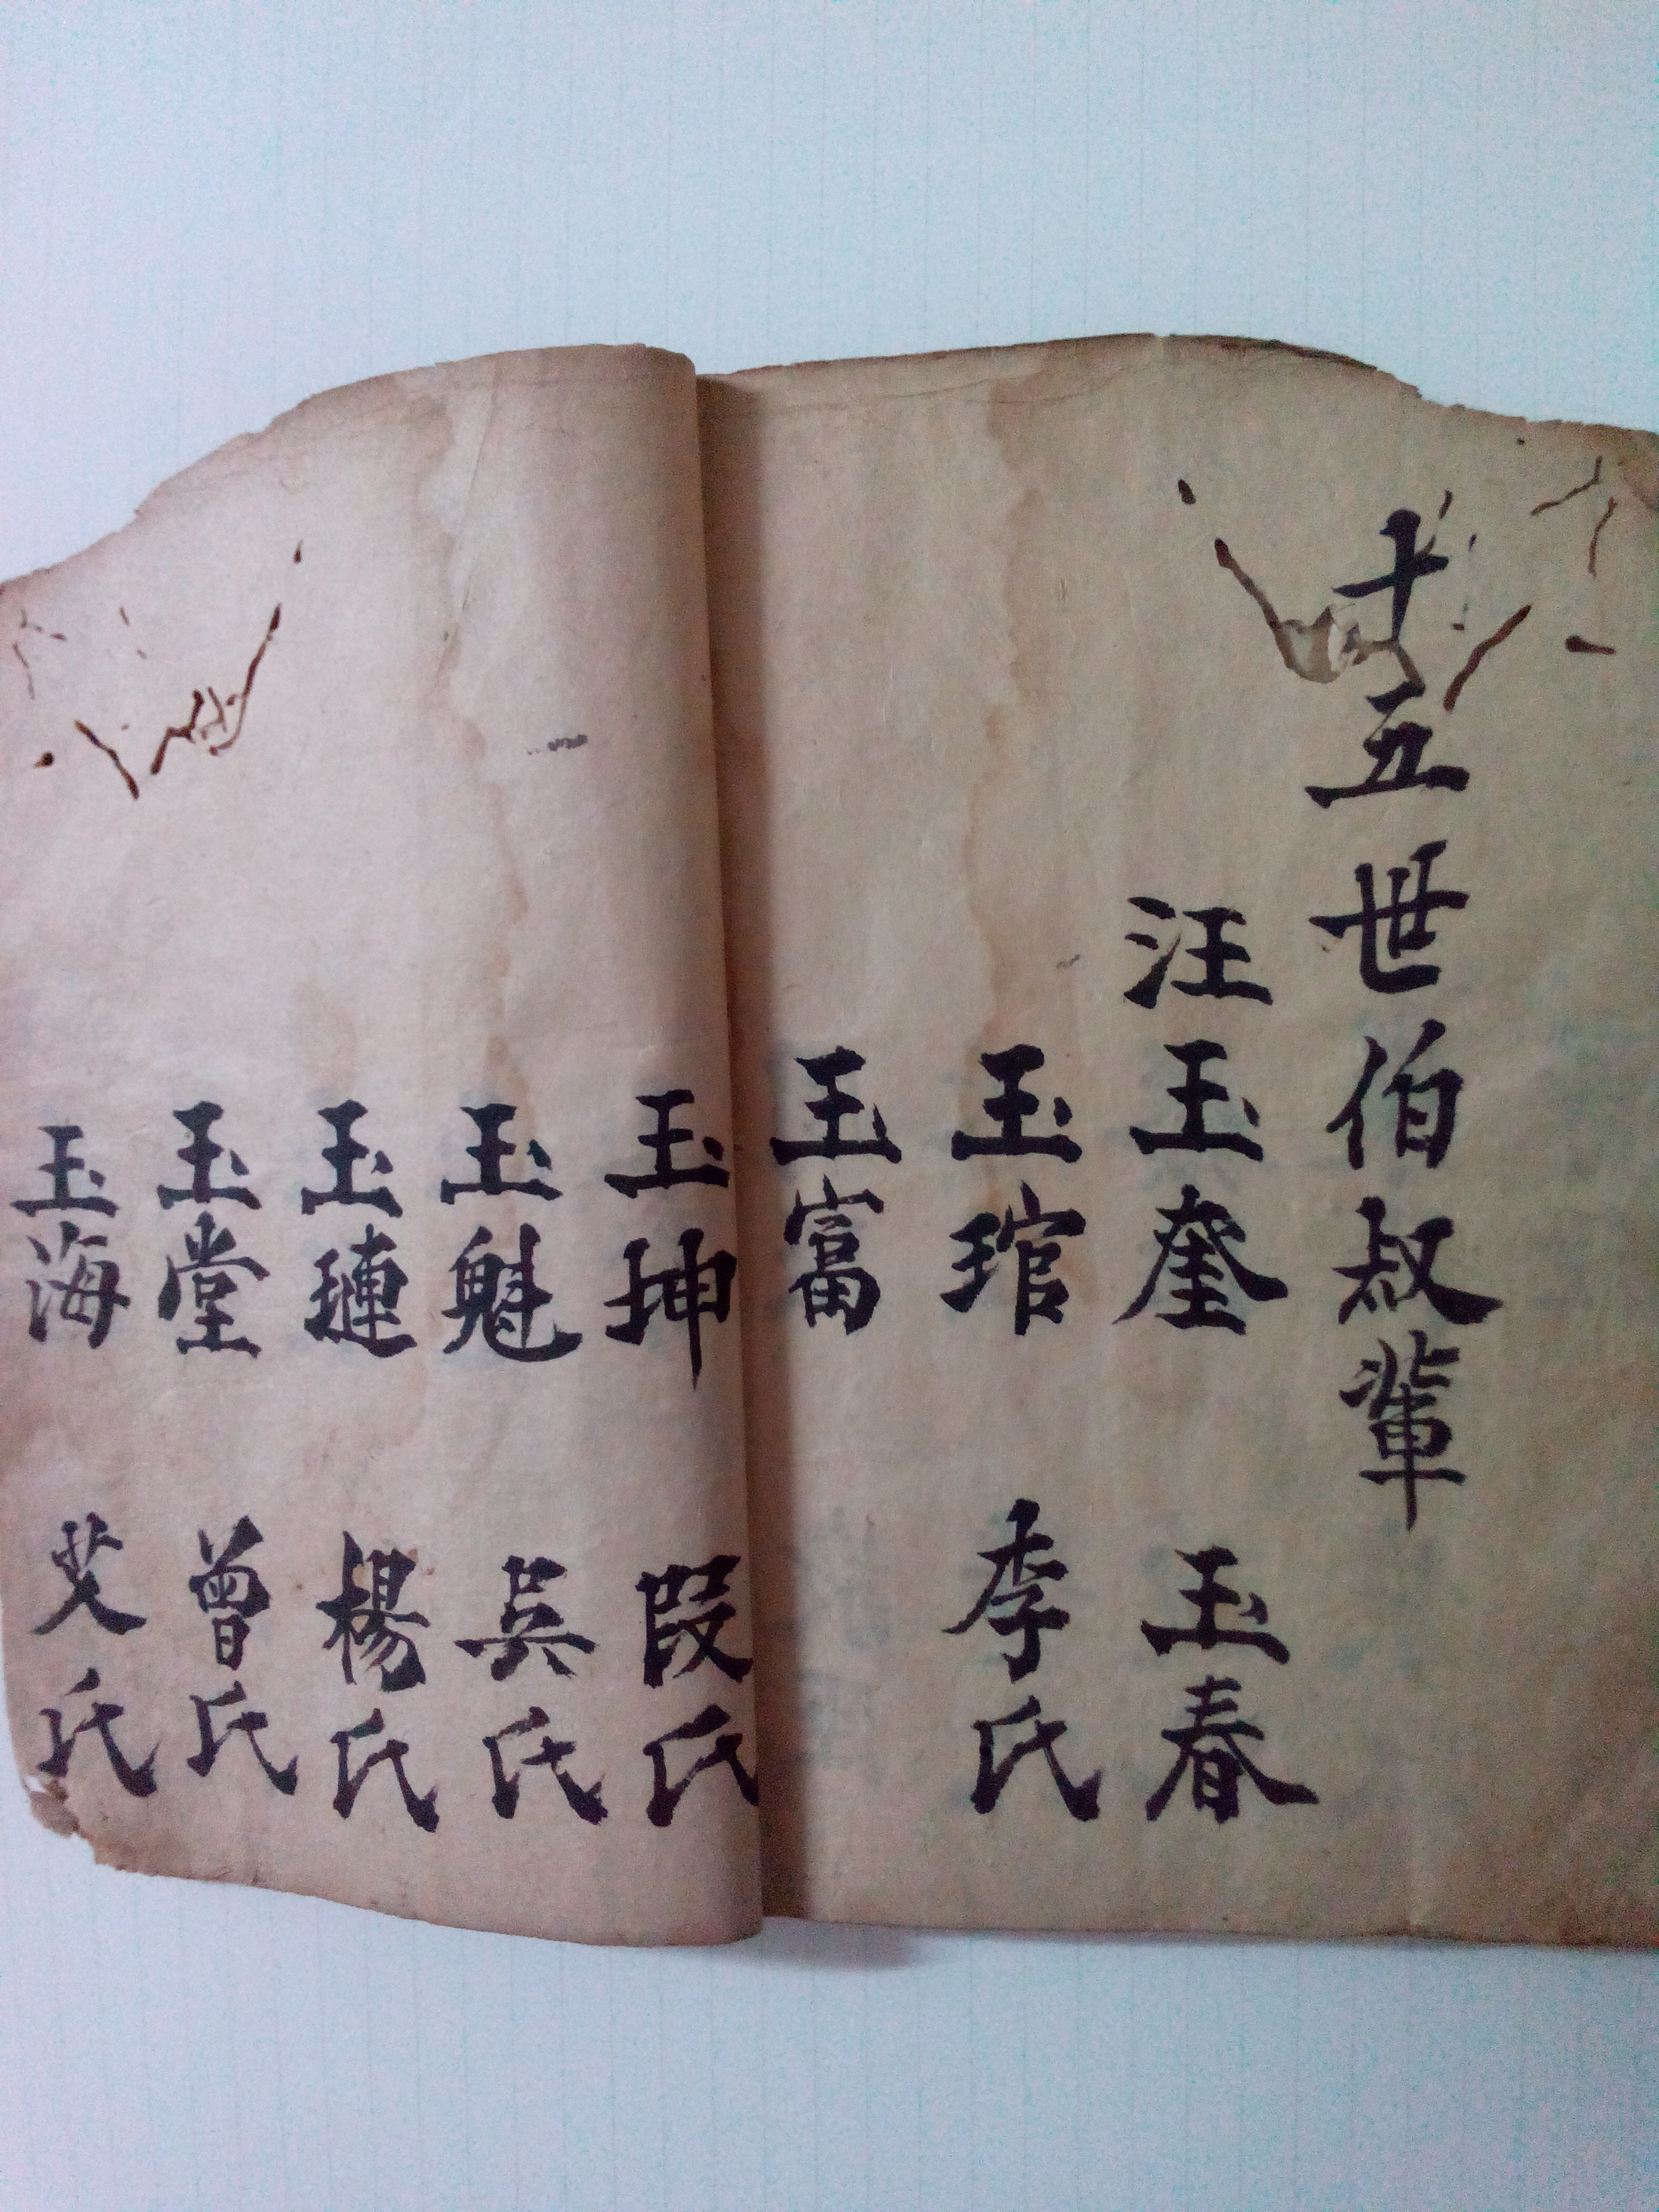 十五世伯叔輩
汪玉奎 玉春
玉琯 李氏
玉富
玉坤 段氏
玉魁 吳氏
玉璉 楊氏
玉堂 曾氏
玉海 艾氏